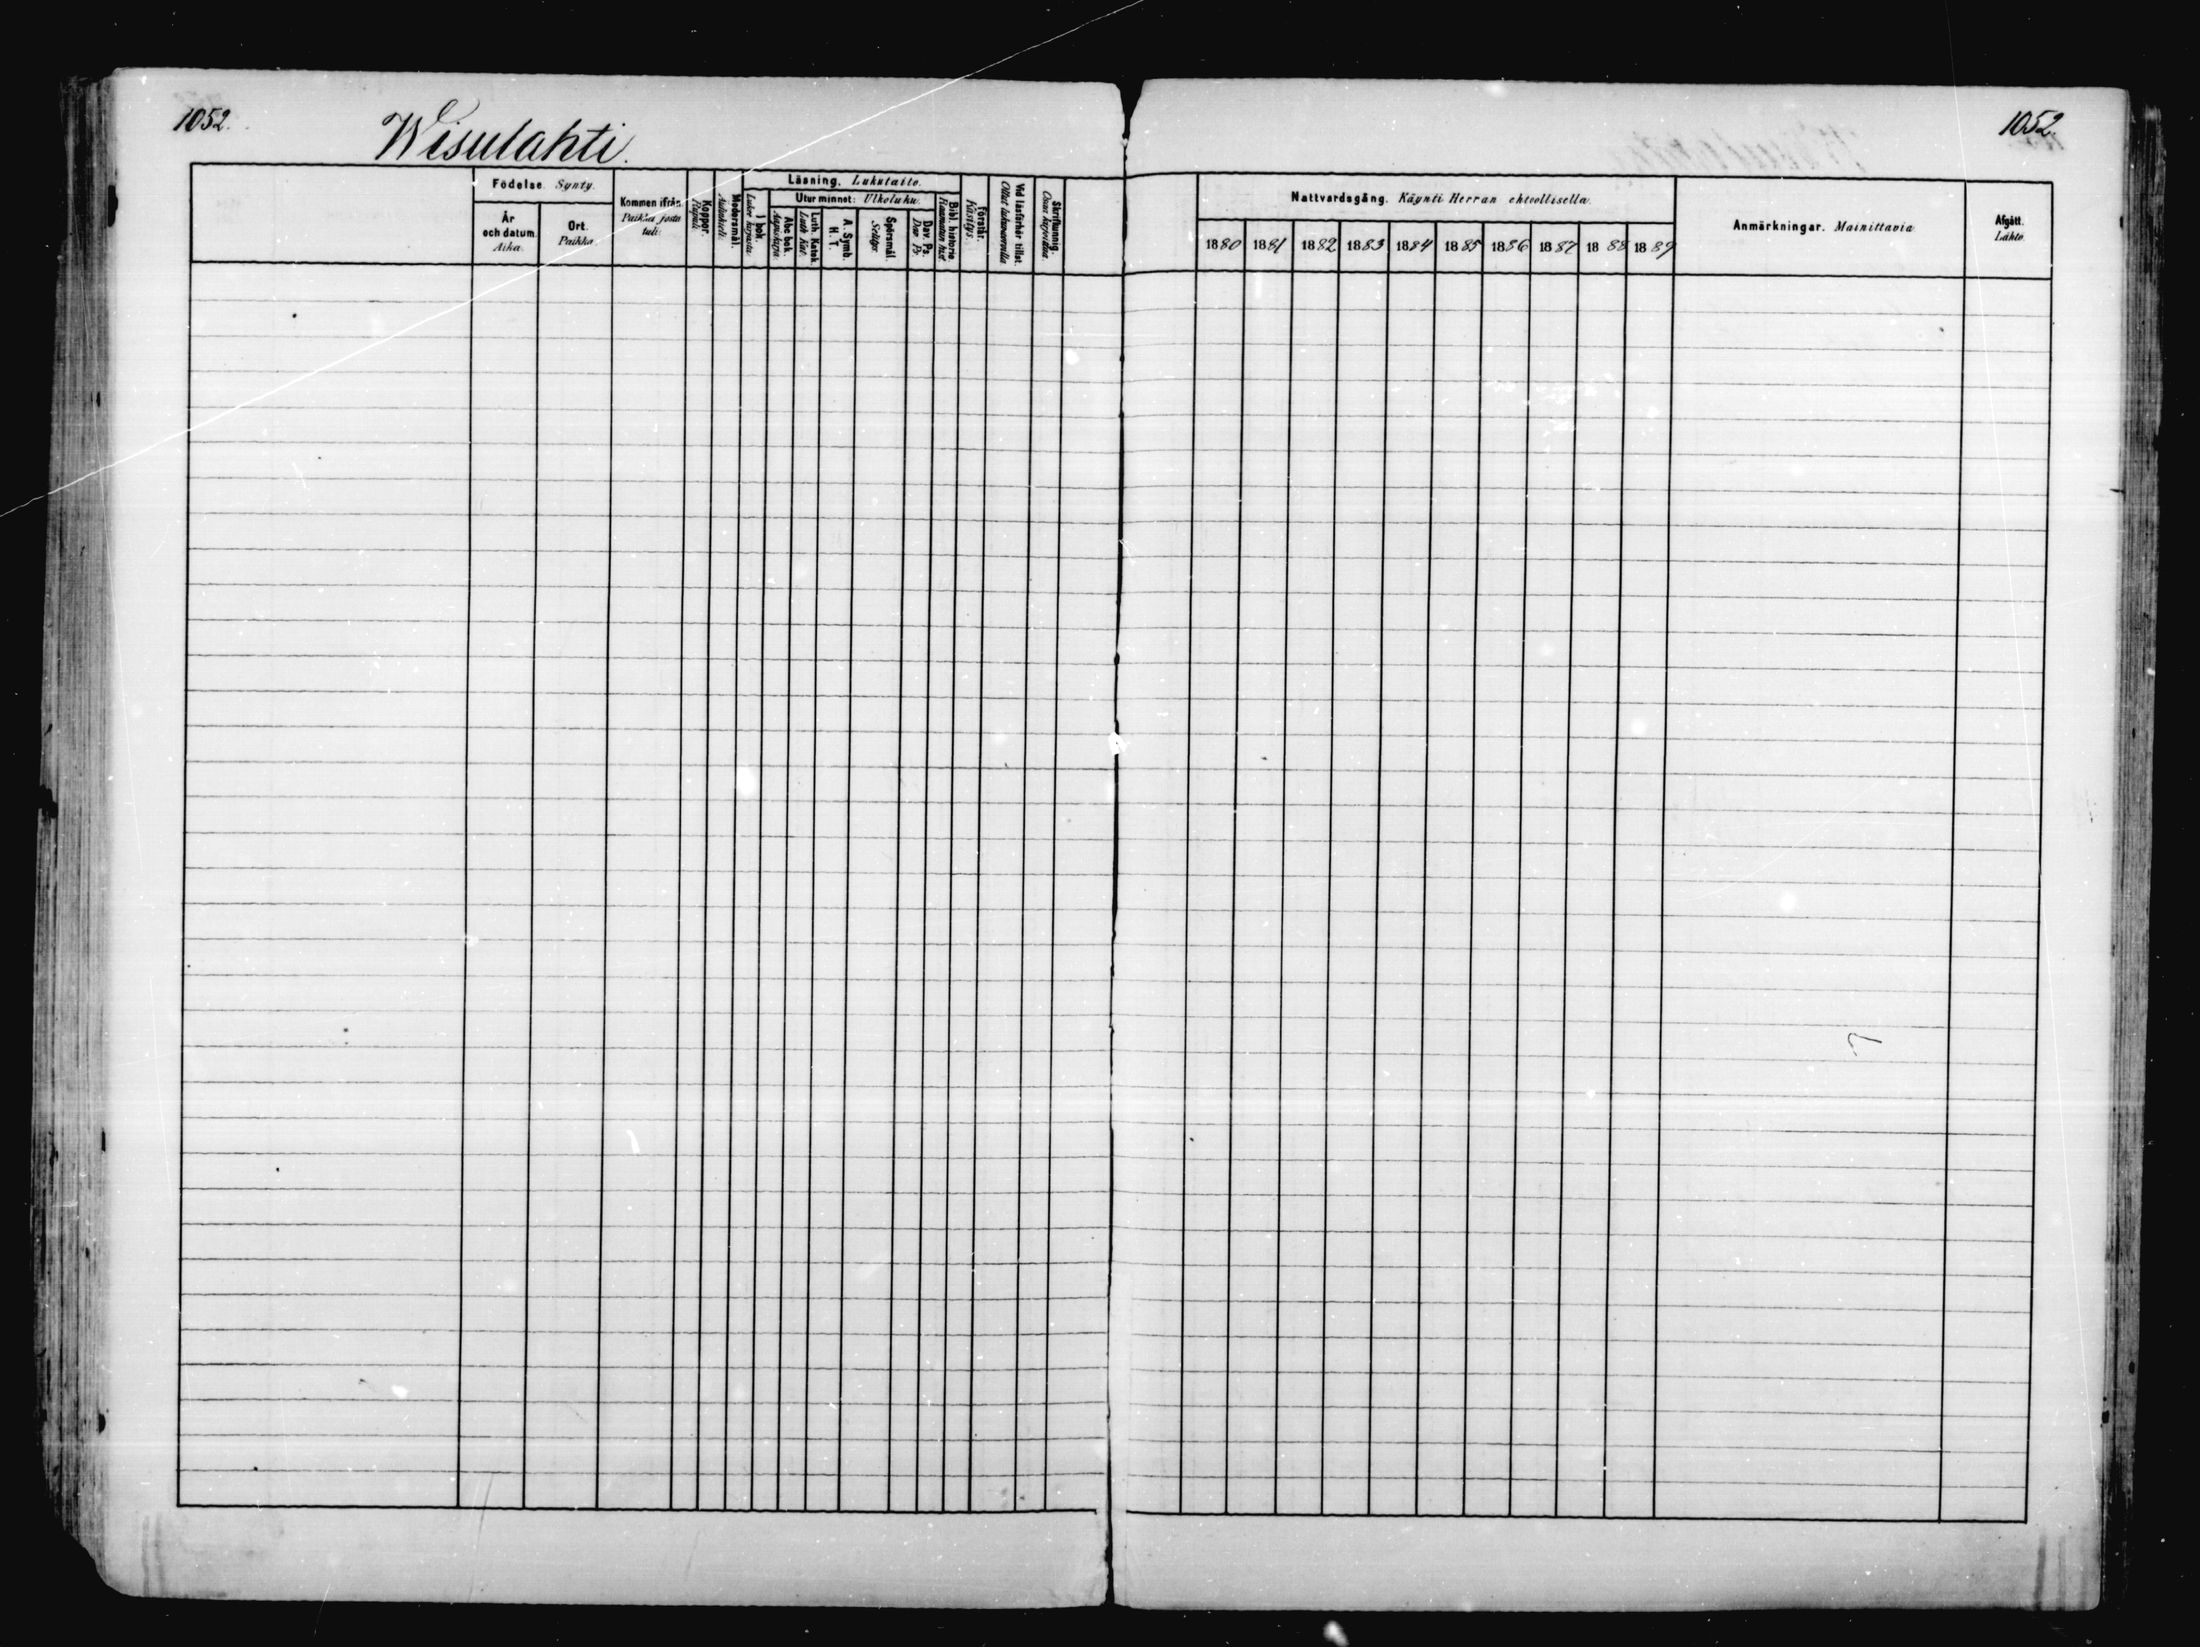 1052.
Wisulahti.
1052.
Födelse. Synty.
År och datum. Aika.
Ort. Paikka.
Kommen ifrån. Paikka josta tuli.
Koppor. Rupuli.
Modersmål. Äidinkieli.
Läsning. Lukutaito.
I bok.
Utur minnet: Ulkoluku.
Abc bok. Aapiskirja.
Luth. Katek. Luth. Kat.
A. Symb. H. T.
Spörsmål. Selitys.
Dav. Ps. Dav. Ps.
Bibl. historie. Raamatun hist.
Förstår. Käsitys.
Vid läsförhör tillst.
Skriftkunnig.
Nattvardsgång. Käynti Herran ehtoollisella.
1880 1881 1882 1883 1884 1885 1886 1887 1888 1889
Anmärkningar. Mainittavia
Afgått. Lähtö.